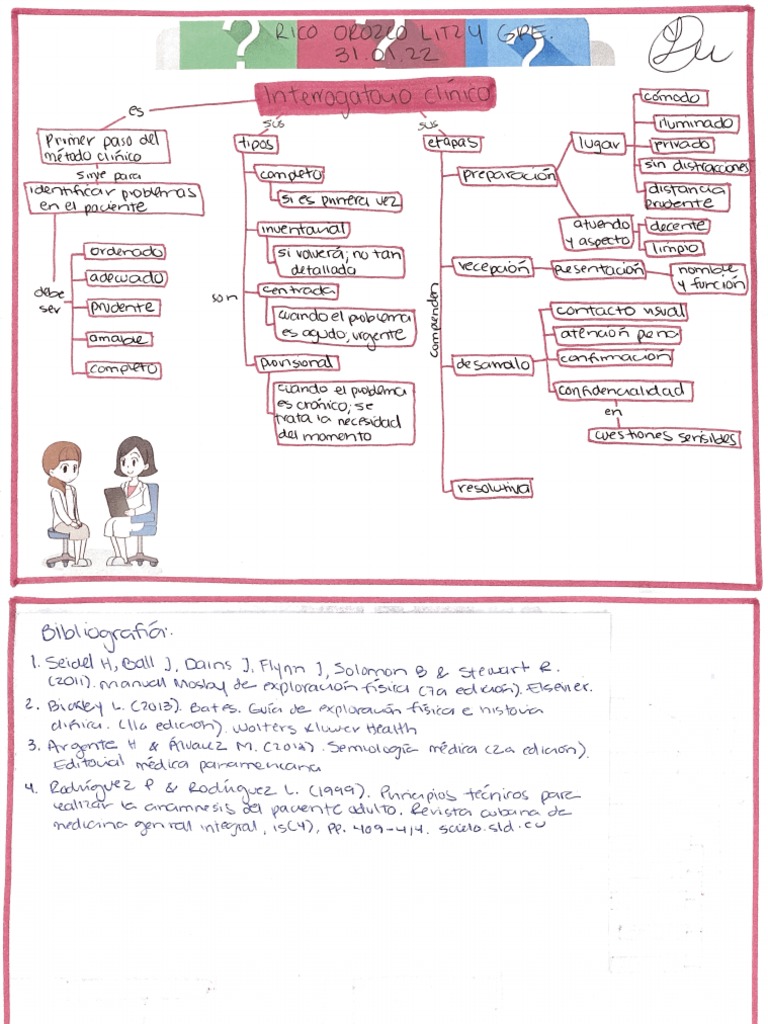 RICO OROZCO LITZY GPE.
31.01.22
Interrogatorio clínico
es
Primer paso del
método clínico
sirve para
identificar problemas
en el paciente
debe
ser
ordenado
adecuado
prudente
amable
completo
sus
tipos
son
completo
si es primera vez
inventarial
si volverá; no tan
detallado
centrada
cuando el problema
es agudo; urgente
provisional
cuando el problema
es crónico; se
trata la necesidad
del momento
sus
etapas
comprenden
preparación
lugar
cómodo
iluminado
privado
sin distracciones
distancia
prudente
atuendo
y aspecto
decente
limpio
recepción
presentación
nombre
y función
desarrollo
contacto visual
atención plena
confirmación
confidencialidad
en
cuestiones sensibles
resolutiva
Bibliografía:
1. Seidel H, Ball J, Dains J, Flynn J, Solomon B & Stewart R.
(2011). Manual Mosby de exploración física (7a edición). Elsevier.
2. Bickley L. (2013). Bates. Guía de exploración física e historia
clínica. (11a edición). Wolters Kluwer Health
3. Argente H & Álvarez M. (). Semiología médica (2a edición).
Editorial médica panamericana
4. Rodríguez P & Rodríguez L. (1999). Principios técnicos para
realizar la anamnesis del paciente adulto. Revista cubana de
medicina general integral, 15(4), pp. 409-414. scielo.sld.cu